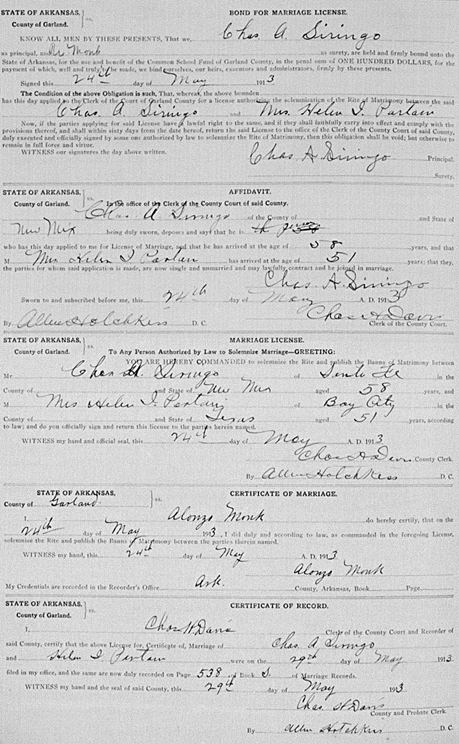 STATE OF ARKANSAS, BOND FOR MARRIAGE LICENSE.
County of Garland. ss.
KNOW ALL MEN BY THESE PRESENTS, That we, Chas A. Siringo
as principal, and Mr Monk as surety, are held and firmly bound unto the
State of Arkansas, for the use and benefit of the Common School Fund of Garland County, in the penal sum of ONE HUNDRED DOLLARS, for the
payment of which, well and truly be made, we bind ourselves, our heirs, executors and administrators, firmly by these presents.
Signed this 24th day of May 1913
The Condition of the above Obligation is Such, That, whereas, the above bounden
has this day applied to the Clerk of the Court of Garland County for a license authorizing the solemnization of the Rite of Matrimony between the said
Chas A. Siringo and Mrs. Helen I. Partain
Now, if the parties applying for said License have a lawful right to the same, and if they shall faithfully carry into effect and comply with the
provisions thereof, and shall within sixty days from the date hereof, return the said License to the office of the Clerk of the County Court of said County,
duly executed and officially signed by some one authorized by law to solemnize the Rite of Matrimony, then this obligation shall be void; but otherwise to
remain in full force and virtue.
WITNESS our signatures the day above written.
Chas A Siringo Principal.
Surety.
STATE OF ARKANSAS, AFFIDAVIT.
County of Garland. ss. In the office of the Clerk of the County Court of said County.
Chas. A Siringo of the County of and State of
New Mex being duly sworn, deposes and says that he is the
who has this day applied to me for License of Marriage, and that he has arrived at the age of 58 years, and that
M Mrs Helen I Partain has arrived at the age of 51 years; that they,
the parties for whom said application is made, are now single and unmarried and may lawfully contract and be joined in marriage.
Chas A. Siringo
Sworn to and subscribed before me, this 24th day of May A. D. 1913
Chas H Davis Clerk of the County Court.
By Allen Hotchkiss D. C.
STATE OF ARKANSAS, MARRIAGE LICENSE.
County of Garland. ss. To Any Person Authorized by Law to Solemnize Marriage—GREETING:
YOU ARE HEREBY COMMANDED to solemnize the Rite and publish the Banns of Matrimony between
Mr. Chas A. Siringo of Sante Fe in the
County of and State of New Mex aged 58 years, and
M Mrs Helen I Partain of Bay City in the
County of and State of Texas aged 51 years, according
to law; and do you officially sign and return this license to the parties herein named.
WITNESS my hand and official seal, this 24th day of May A. D. 1913
Chas H Davis County Clerk.
By Allen Hotchkiss D. C.
STATE OF ARKANSAS, CERTIFICATE OF MARRIAGE.
County of Garland ss.
I, Alonzo Monk do hereby certify, that on the
24th day of May 1913, I did duly and according to law, as commanded in the foregoing License,
solemnize the Rite and publish the Banns of Matrimony between the parties therein named.
WITNESS my hand, this 24th day of May A. D. 1913
Alonzo Monk
My Credentials are recorded in the Recorder's Office Ark County, Arkansas, Book Page
STATE OF ARKANSAS, CERTIFICATE OF RECORD.
County of Garland. ss.
I, Chas H Davis Clerk of the County Court and Recorder of
said County, certify that the above License for, Certificate of, Marriage of Chas. A Siringo
and Helen I. Partain were on the 29th day of May 1913
filed in my office, and the same are now duly recorded on Page 538 of Book S. of Marriage Records.
WITNESS my hand and the seal of said County, this 29th day of May 1913
Chas. H Davis County and Probate Clerk.
By Allen Hotchkiss D. C.